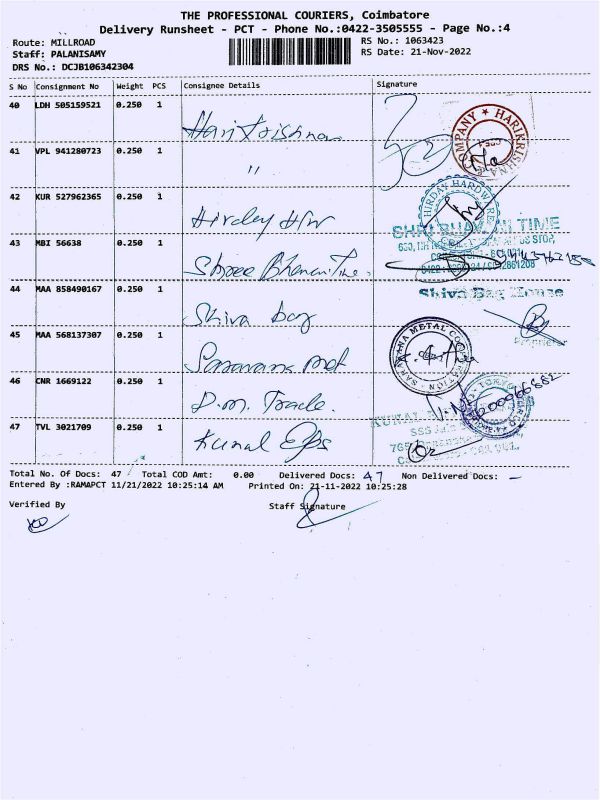 THE PROFESSIONAL COURIERS, Coimbatore
Delivery Runsheet - PCT - Phone No.:0422-3505555 - Page No.:4
Route: MILLROAD
RS No.: 1063423
Staff: PALANISAMY
RS Date: 21-Nov-2022
DRS No.: DCJB106342304
S No Consignment No Weight PCS Consignee Details Signature
40 LDH 505159521 0.250 1 Hari Krishna
COMPANY ★ HARIKRISHNA
41 VPL 941280723 0.250 1 "
42 KUR 527962365 0.250 1 Hirday H/W
HIRDAY HARDWARE
43 MBI 56638 0.250 1 Shree Bhavani Time.
TIME
STOP,
44 MAA 858490167 0.250 1 Shiva bag
Shiva Bag House
45 MAA 568137307 0.250 1 Saravana met
SARAVANA METAL CORPORATION
46 CNR 1669122 0.250 1 D.m. Trade.
47 TVL 3021709 0.250 1 Kunal Eps
KUNAL
Total No. Of Docs: 47 Total COD Amt: 0.00 Delivered Docs: 47 Non Delivered Docs: -
Entered By :RAMAPCT 11/21/2022 10:25:14 AM Printed On: 21-11-2022 10:25:28
Verified By Staff Signature